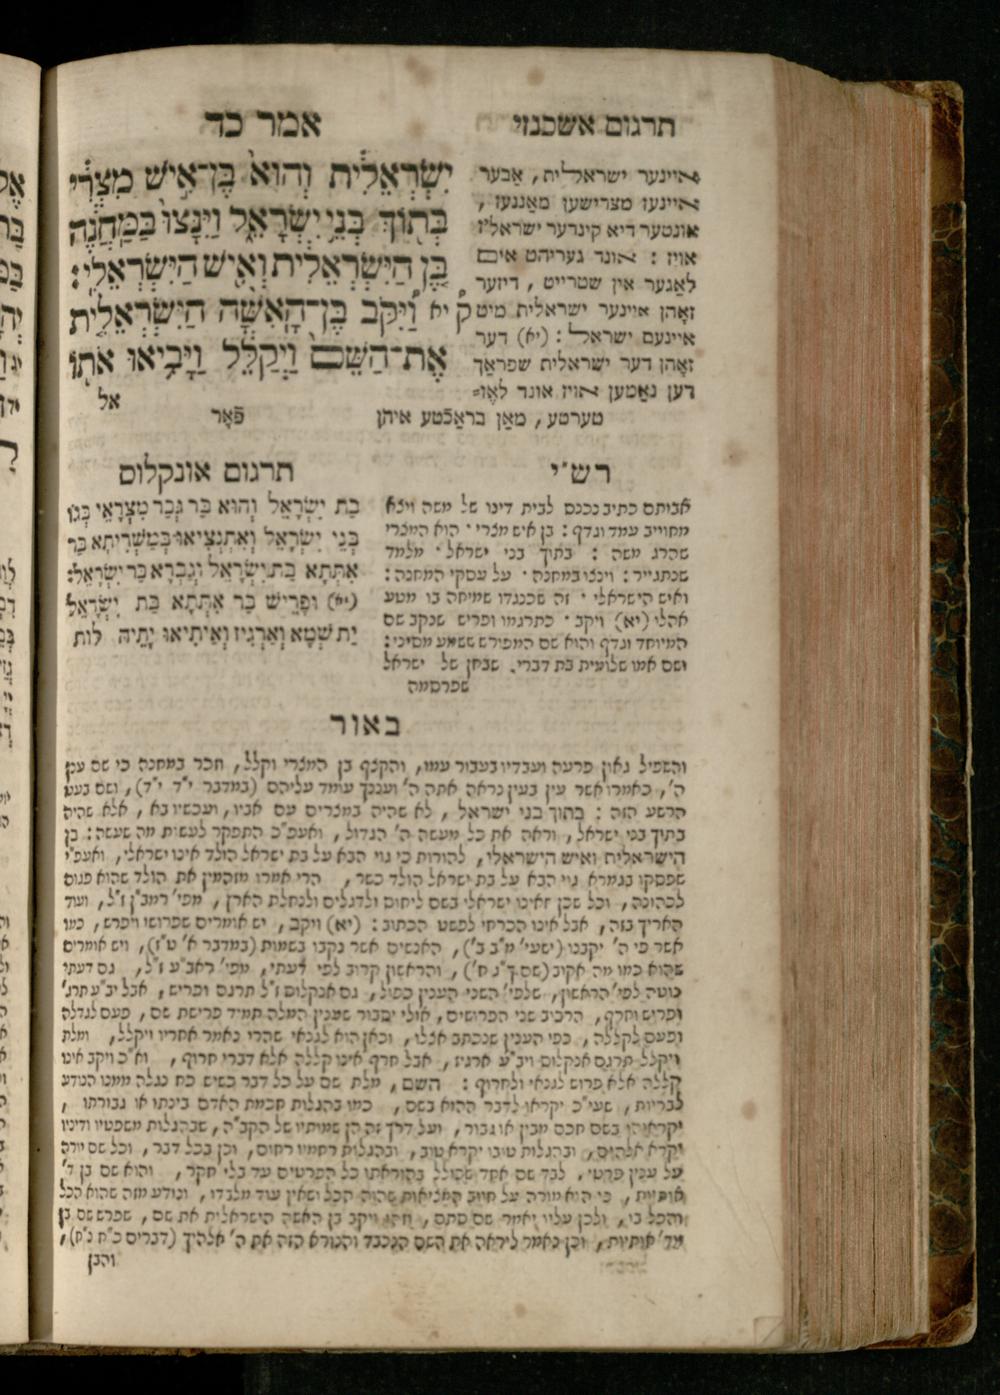 תרגום אשכנזי
אמר כד
איינער ישראלית, אבער
איינעז מצרישען מאננעז,
אונטער דיא קינדער ישראל׳ז
אויז : אונד געריהט אים
לאגער אין שטרייט, דיזער
זאהן איינער ישראלית מיט
איינעם ישראל : (יא) דער
זאהן דער ישראלית שפראך
דען נאמען אויז אונד לאז=
טערטע, מאן בראכטע איהן
פאר
יִשְׂרְאֵלִית וְהוּא בֶּן־אִישׁ מִצְרִי
בְּתוֹךְ בְּנֵי יִשְׂרָאֵל וַיִּנָּצוּ בַּמַּחֲנֶה
בֶּן הַיִּשְׂרְאֵלִית וְאִישׁ הַיִּשְׂרְאֵלִי :
ק יא וַיִּקֹּב בֶּן־הָאִשָּׁה הַיִּשְׂרְאֵלִית
אֶת־הַשֵּׁם וַיְקַלֵּל וַיָּבִיאוּ אֹתוֹ
אל
רש״י
אבותם כתיב נכנס לבית דינו של משה ויצא
מחוייב עמד וגדף : בן איש מצרי · הוא המצרי
שהרג משה : בתוך בני ישראל · מלמד
שנתגייר : וינצו במחנה · על עסקי המחנה :
ואיש הישראלי · זה שכנגדו שמיחה בו מטע
אהלו (יא) ויקב · כתרגמו ופריש שנקב שם
המיוחד וגדף והוא שם המפורש ששמע מסיני :
ושם אמו שלומית בת דברי. שבחן של ישראל
שפרסמה
תרגום אונקלוס
בַּת יִשְׂרָאֵל וְהוּא בַּר גְּבַר מִצְרָאֵי בְּגוֹ
בְּנֵי יִשְׂרָאֵל וְאִתְנְצִיאוּ בְּמַשְׁרִיתָא בַּר
אִתְּתָא בַת יִשְׂרָאֵל וְגַבְרָא בַּר יִשְׂרָאֵל:
(יא) וּפָרֵישׁ בַּר אִתְּתָא בַּת יִשְׂרָאֵל
יַת שְׁמָא וְאַרְגִּיז וְאַיְתִיאוּ יָתֵיהּ לות
באור
והשפיל גאון פרעה ועבדיו בעבור עמו, והקנף בן המצרי וקלל, חכר במחנה כי שם ענן
ה׳, כאמרו אשר עין בעין נראה אתה ה׳ ועננך עומד עליהם (במדבר י״ד י״ד), ושם בעט
הרשע הזה : בתוך בני ישראל, לא שהיה במצרים עם אביו, ועכשיו בא, אלא שהיה
בתוך בני ישראל, וראה את כל מעשה ה׳ הגדול, ואעפ״כ התפקר לעשות מה שעשה : בן
הישראלית ואיש הישראלי, להורות כי גוי הבא על בת ישראל הולד אינו ישראלי, ואעפ״י
שפסקו בגמרא גוי הבא על בת ישראל הולד כשר, הרי אמרו מזהמין את הולד שהוא פגום
לכהונה, וכל שכן שאינו ישראלי בשם ליחוס ולדגלים ולנחלת הארץ, מפי׳ רמב״ן ז״ל, ועוד
האריך בזה, אבל אינו הכרחי לפשט הכתוב : (יא) ויקב, יש אומרים שפרושו ויפרש, כמו
אשר פי ה׳ יקבנו (ישעי׳ ס״ב ב׳), האנשים אשר נקבו בשמות (במדבר א׳ ט״ז), ויש אומרים
שהוא כמו מה אקוב (שם כ״ג ח׳), והראשון קרוב לפי דעתי, מפי׳ ראב״ע ז״ל, גם דעתי
נוטה לפי׳ הראשון, שלפי׳ השני הענין כפול, גם אנקלוס ז״ל תרגם ופריש, אבל יב״ע תרג׳
ופריש וחרף, הרכיב שני הפרושים, אולי יסבור שענין המלה תמיד פרישת שם, פעם לגדלה
ופעם לקללה, כפי הענין שנכתב אצלו, וכאן הוא לגנאי שהרי נאמר אחריו ויקלל, ומלת
ויקלל תרגם אנקלוס ויב״ע ארגיז, אבל חרף אינו קללה אלא דברי חרוף, וא״כ ויקב אינו
קללה אלא פרוש לגנאי ולחרוף : השם, מלת שם על כל דבר כשיש כח נגלה ממנו הנודע
לבריות, שעי״כ יקראו לדבר ההוא בשם, כמו בהגלות חכמת האדם בינתו או גבורתו,
יקראוהו בשם חכם מבין או גבור, ועל דרך זה הן שמותיו של הקב״ה, שבהגלות משפטיו ודיניו
יקרא אלהים, ובהגלות טובו יקרא טוב, ובהגלות רחמיו רחום, וכן בכל דבר, וכל שם יורה
על ענין פרטי. לבד שם אחד שכולל בהוראתו כל הפרטים עד בלי חקר, והוא שם בן ד׳
אותיות, כי הוא מורה על חיוב המציאות שהוה הכל ושאין עוד מלבדו, ונודע מזה שהוא הכל
והכל בו, ולכן עליו יאמר שם סתם, וזהו ויקב בן האשה הישראלית את שם, שפרש שם בן
ד׳ אותיות, וכן נאמר ליראה את השם הנכבד והנורא הזה את ה׳ אלהיך (דברים כ״ח נ״ח),
והבן